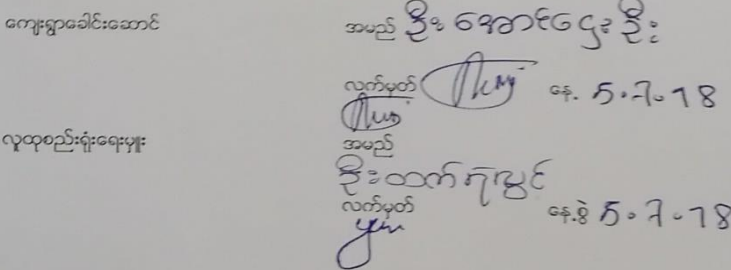 ကျေးရွာခေါင်းဆောင် အမည် ဦး အောင်ငွေဦး
လက်မှတ် နေ့. 5.7.18
လူထုစည်းရုံးရေးမှူး အမည်
ဦးထက်
လက်မှတ် နေ့စွဲ 5.7.18